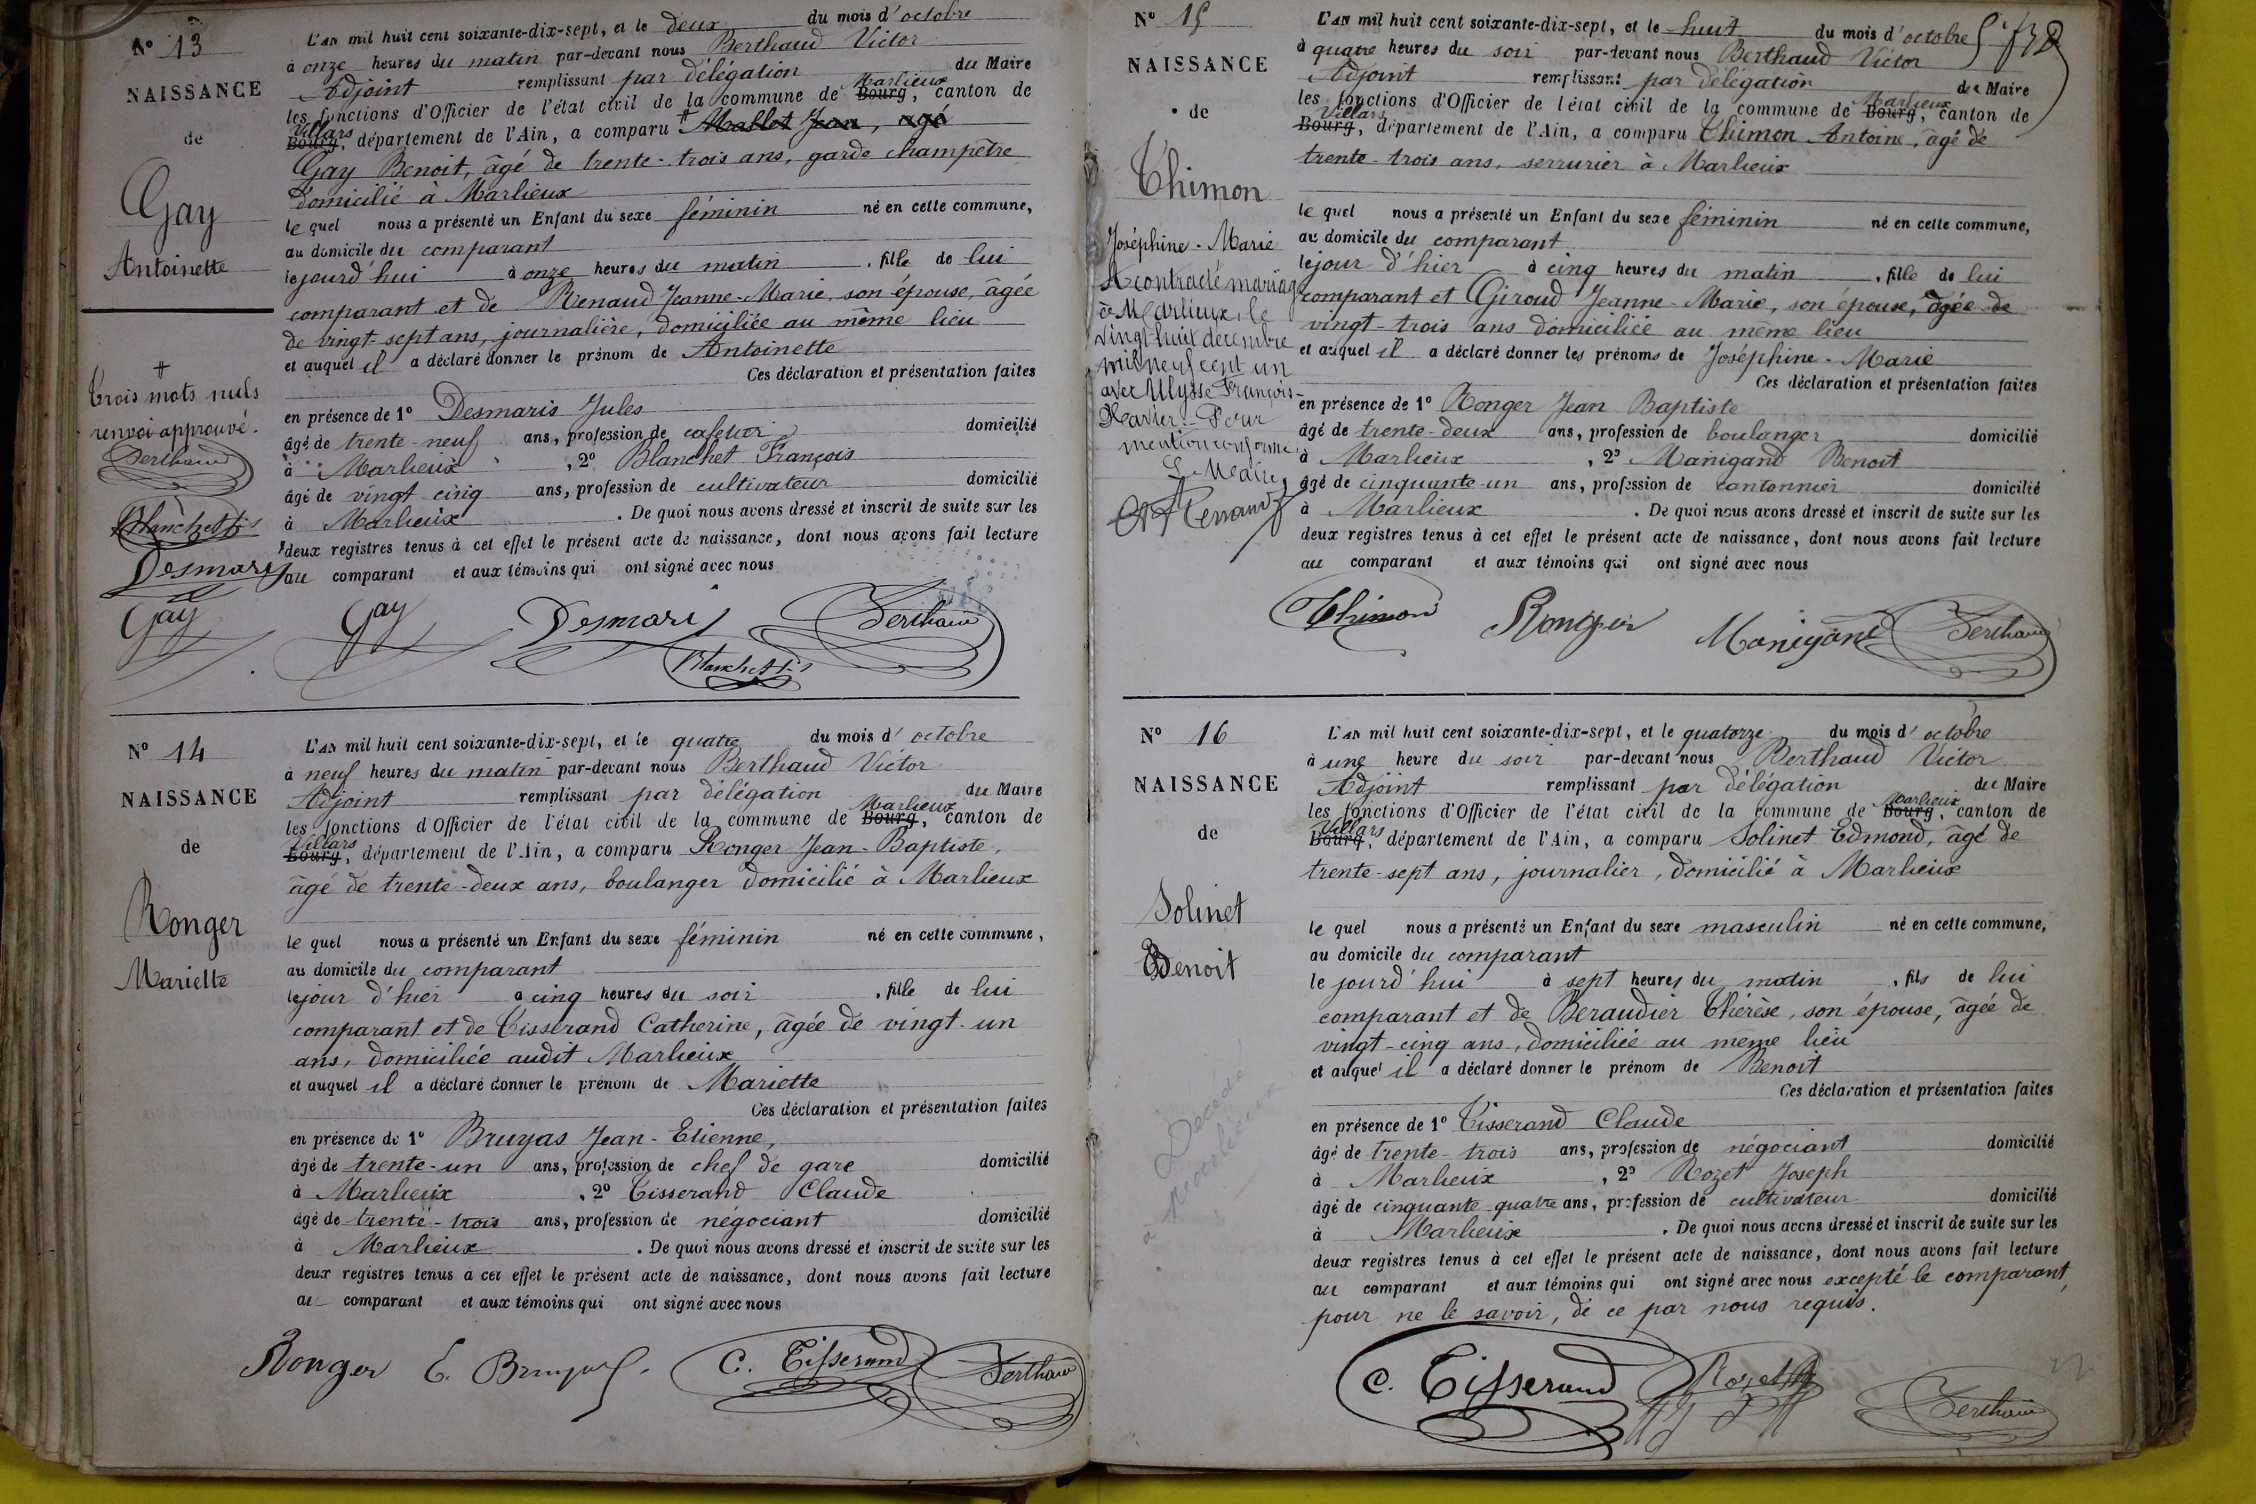 N° 13
NAISSANCE
de
Gay
Antoinette
‡
trois mots nuls
renvoi approuvé.
Berthaud
Blanchet fils
Desmaris
Gay
L'an mil huit cent soixante-dix-sept, et le deux du mois d'octobre
à onze heures du matin par-devant nous Berthaud Victor
Adjoint remplissant par délégation du Maire
les fonctions d'Officier de l'état civil de la commune de Bourg Marlieux, canton de
Bourg Villars, département de l'Ain, a comparu ‡ Mallot Jean, agé
Gay Benoit, âgé de trente-trois ans, garde champêtre
domicilié à Marlieux
le quel nous a présenté un Enfant du sexe féminin né en cette commune,
au domicile du comparant
lejourd'hui à onze heures du matin, fille de lui
comparant et de Renaud Jeanne-Marie, son épouse, âgée
de vingt-sept ans, journalière, domiciliée au même lieu
et auquel il a déclaré donner le prénom de Antoinette
Ces déclaration et présentation faites
en présence de 1° Desmaris Jules
âgé de trente-neuf ans, profession de cafetier domicilié
à Marlieux, 2° Blanchet François
âgé de vingt cinq ans, profession de cultivateur domicilié
à Marlieux. De quoi nous avons dressé et inscrit de suite sur les
deux registres tenus à cet effet le présent acte de naissance, dont nous avons fait lecture
au comparant et aux témoins qui ont signé avec nous
Gay Desmaris Berthaud
Blanchet fils
N° 14
NAISSANCE
de
Ronger
Mariette
L'an mil huit cent soixante-dix-sept, et le quatre du mois d'octobre
à neuf heures du matin par-devant nous Berthaud Victor
Adjoint remplissant par délégation du Maire
les fonctions d'Officier de l'état civil de la commune de Bourg Marlieux, canton de
Bourg Villars, département de l'Ain, a comparu Ronger Jean-Baptiste,
âgé de trente-deux ans, boulanger domicilié à Marlieux
le quel nous a présenté un Enfant du sexe féminin né en cette commune,
au domicile du comparant
lejour d'hier à cinq heures du soir, fille de lui
comparant et de Tisserand Catherine, âgée de vingt-un
ans, domiciliée audit Marlieux
et auquel il a déclaré donner le prénom de Mariette
Ces déclaration et présentation faites
en présence de 1° Bruyas Jean-Etienne,
âgé de trente-un ans, profession de chef de gare domicilié
à Marlieux, 2° Tisserand Claude
âgé de trente-trois ans, profession de négociant domicilié
à Marlieux. De quoi nous avons dressé et inscrit de suite sur les
deux registres tenus à cet effet le présent acte de naissance, dont nous avons fait lecture
au comparant et aux témoins qui ont signé avec nous
Ronger E. Bruyas C. Tisserand Berthaud
N° 15
NAISSANCE
de
Thimon
Joséphine-Marie
A contracté mariage
à Marlieux, le
vingt huit décembre
mil neuf cent un
avec Ulysse François-
Xavier - Pour
mention conforme,
Le Maire,
L'an mil huit cent soixante-dix-sept, et le huit du mois d'octobre
à quatre heures du soir par-devant nous Berthaud Victor
Adjoint remplissant par délégation du Maire
les fonctions d'Officier de l'état civil de la commune de Bourg Marlieux, canton de
Bourg Villars, département de l'Ain, a comparu Thimon Antoine, âgé de
trente-trois ans, serrurier à Marlieux
le quel nous a présenté un Enfant du sexe féminin né en cette commune,
au domicile du comparant
lejour d'hier à cinq heures du matin, fille de lui
comparant et Giroud Jeanne-Marie, son épouse, âgée de
vingt-trois ans domiciliée au même lieu
et auquel il a déclaré donner les prénoms de Joséphine-Marie
Ces déclaration et présentation faites
en présence de 1° Ronger Jean Baptiste
âgé de trente-deux ans, profession de boulanger domicilié
à Marlieux, 2° Manigand Benoit
âgé de cinquante-un ans, profession de cantonnier domicilié
à Marlieux. De quoi nous avons dressé et inscrit de suite sur les
deux registres tenus à cet effet le présent acte de naissance, dont nous avons fait lecture
au comparant et aux témoins qui ont signé avec nous
Thimon Ronger Manigand Berthaud
N° 16
NAISSANCE
de
Solinet
Benoit
Décédé
à Marlieux
L'an mil huit cent soixante-dix-sept, et le quatorze du mois d'octobre
à une heure du soir par-devant nous Berthaud Victor
Adjoint remplissant par délégation du Maire
les fonctions d'Officier de l'état civil de la commune de Bourg Marlieux, canton de
Bourg Villars, département de l'Ain, a comparu Solinet Edmond, âgé de
trente-sept ans, journalier, domicilié à Marlieux
le quel nous a présenté un Enfant du sexe masculin né en cette commune,
au domicile du comparant
le jourd'hui à sept heures du matin, fils de lui
comparant et de Beraudier Thérèse, son épouse, âgée de
vingt-cinq ans, domiciliée au meme lieu
et auquel il a déclaré donner le prénom de Benoit
Ces déclaration et présentation faites
en présence de 1° Tisserand Claude
âgé de trente-trois ans, profession de négociant domicilié
à Marlieux, 2° Rozet Joseph
âgé de cinquante quatre ans, profession de cultivateur domicilié
à Marlieux. De quoi nous avons dressé et inscrit de suite sur les
deux registres tenus à cet effet le présent acte de naissance, dont nous avons fait lecture
au comparant et aux témoins qui ont signé avec nous excepté le comparant,
pour ne le savoir, de ce par nous requis.
C. Tisserand Rozet Berthaud